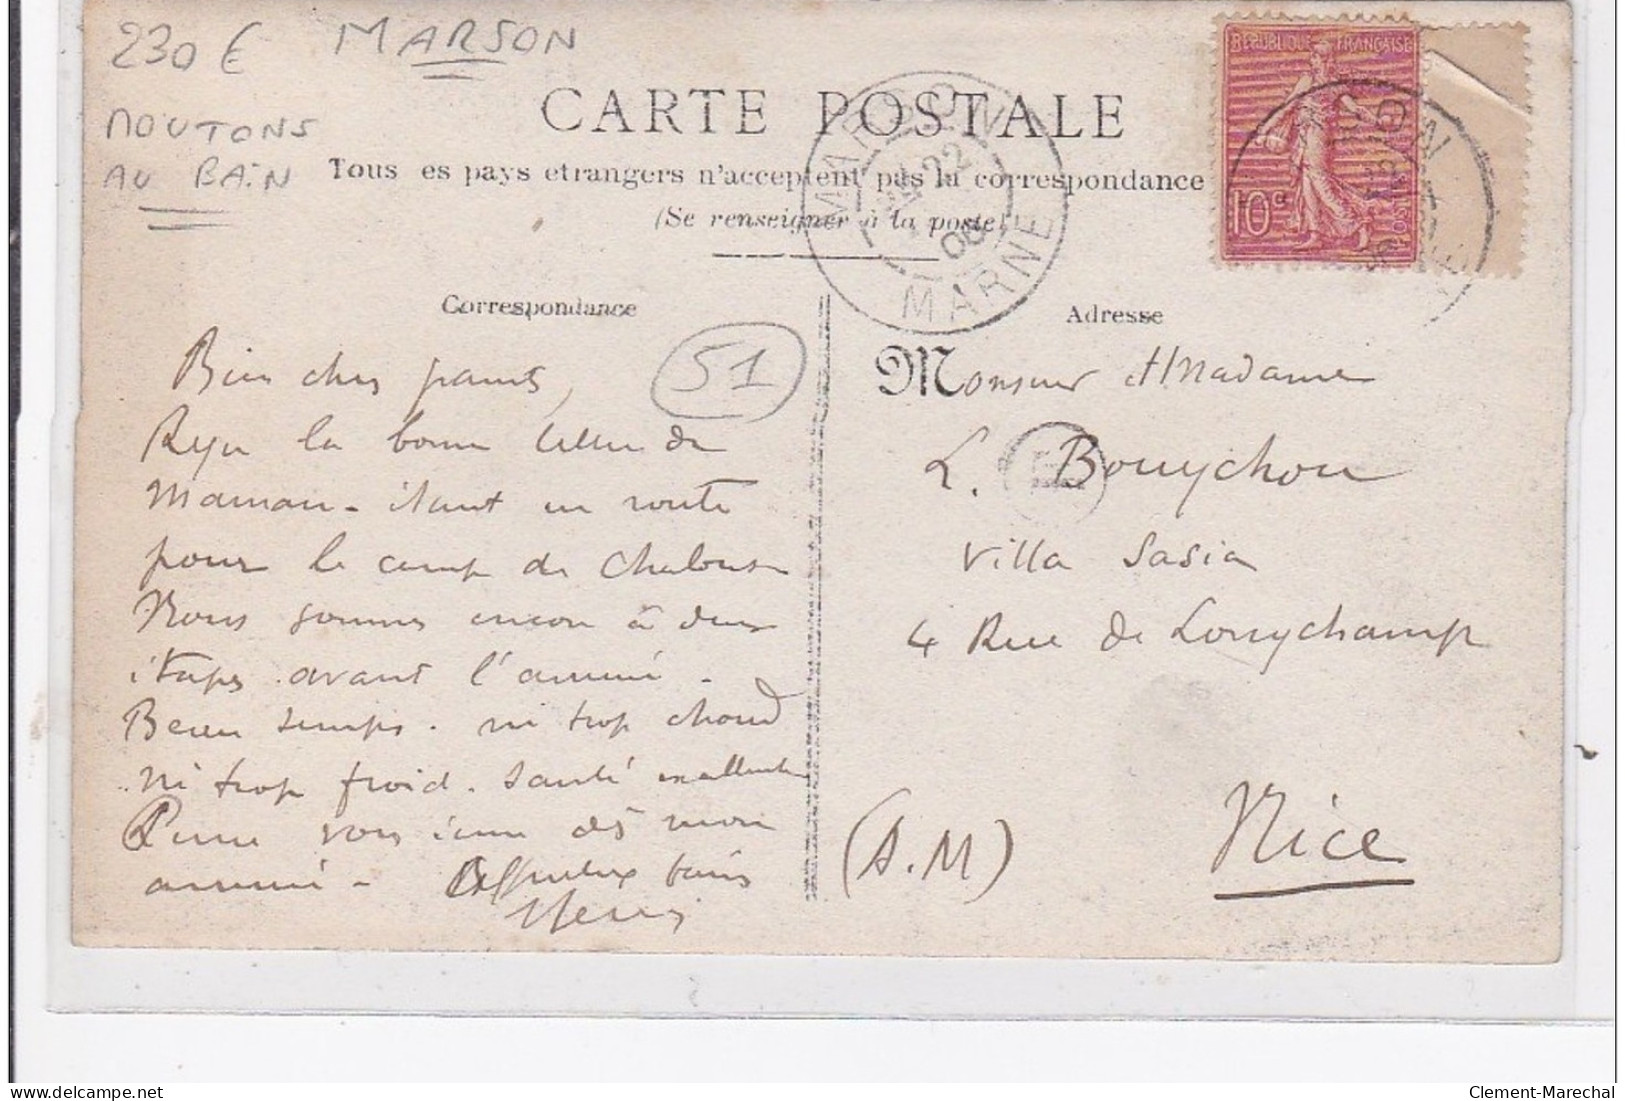 230 €
MARSON
MOUTONS
AU BAIN
RÉPUBLIQUE FRANÇAISE
10c
POSTES
CARTE POSTALE
Tous es pays etrangers n'acceptent pas la correspondance
(Se renseigner à la poste)
MARSON
22
06
MARNE
Correspondance
51
Bien chers parents,
Reçu la bonne lettre de
Maman - étant en route
pour le camp de Chalons
Nous sommes encore à deux
étapes avant l'arrivée.
Beau temps. ni trop chaud
ni trop froid. Santé excellente
vous dès mon
arrivée - Affectueux baisers
Henri
Adresse
Monsieur et Madame
L. Bouychou
Villa Sasia
4 Rue de Longchamp
Nice
(A.M)
delcampe.net
Clement-Marechal